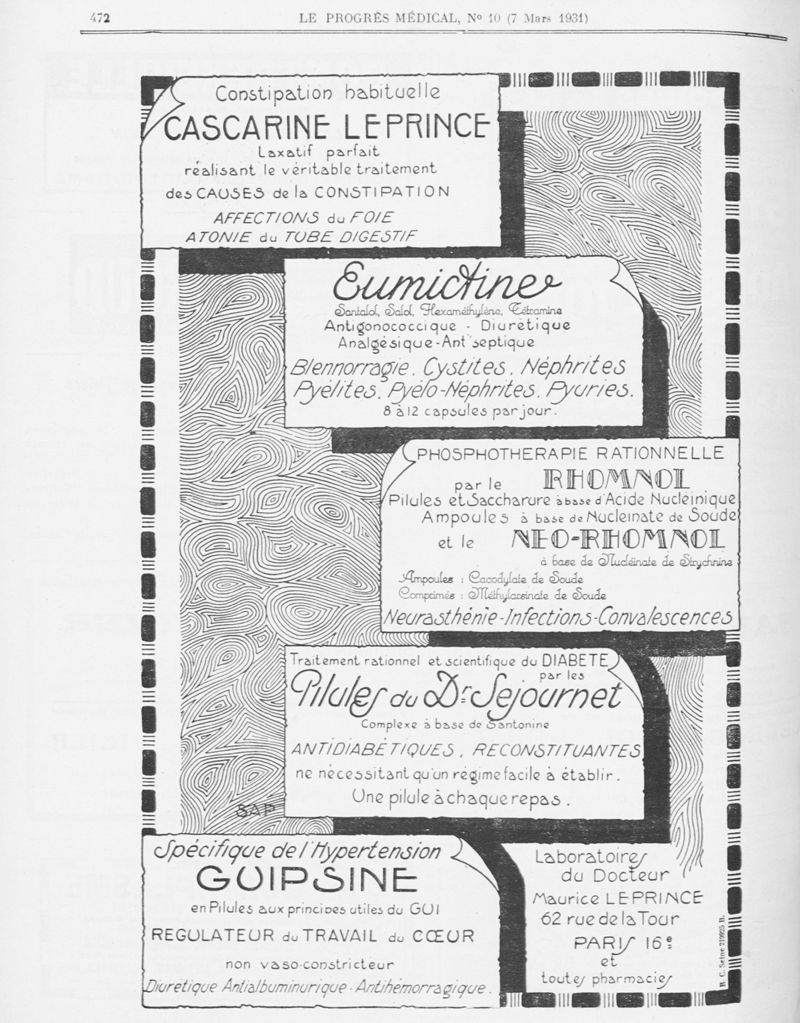 472
LE PROGRÈS MÉDICAL, No 10 (7 Mars 1931)
Constipation habituelle
CASCARINE LEPRINCE
Laxatif parfait
réalisant le véritable traitement
des CAUSES de la CONSTIPATION
AFFECTIONS du FOIE
ATONIE du TUBE DIGESTIF
Eumictine
Santalol, Salol, Hexaméthylène, Tétramine
Antigonococcique - Diurétique
Analgésique-Antiseptique
Blennorragie. Cystites. Néphrites
Pyélites. Pyélo-Néphrites. Pyuries.
8 à 12 capsules par jour.
PHOSPHOTHERAPIE RATIONNELLE
par le RHOMNOL
Pilules et Saccharure à base d'Acide Nucléinique
Ampoules à base de Nucleinate de Soude
et le NEO-RHOMNOL
à base de Nucléinate de Strychnine
Ampoules : Cacodylate de Soude
Comprimés : Méthylarsinate de Soude
Neurasthénie-Infections-Convalescences
Traitement rationnel et scientifique du DIABETE
par les
Pilules du Dr Sejournet
Complexe à base de Santonine
ANTIDIABÉTIQUES, RECONSTITUANTES
ne nécessitant qu'un régime facile à établir.
Une pilule à chaque repas.
SAP
Spécifique de l'Hypertension
GUIPSINE
en Pilules aux principes utiles du GUI
REGULATEUR du TRAVAIL du CŒUR
non vaso-constricteur
Diurétique Antialbuminurique-Antihémorragique.
Laboratoires
du Docteur
Maurice LEPRINCE
62 rue de la Tour
PARIS 16e
et
toutes pharmacies
R. C. Seine